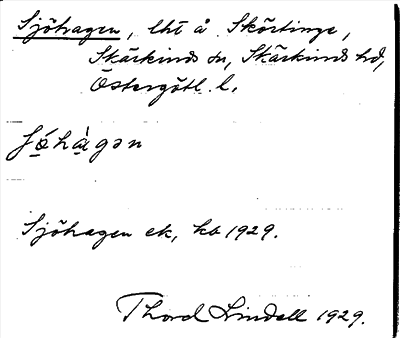 Sjöhagen, lht å Skörtinge,
Skärkinds sn, Skärkinds hd,
Östergötl. l.
Sjöhagen ek, kb 1929.
Thord Lindell 1929.